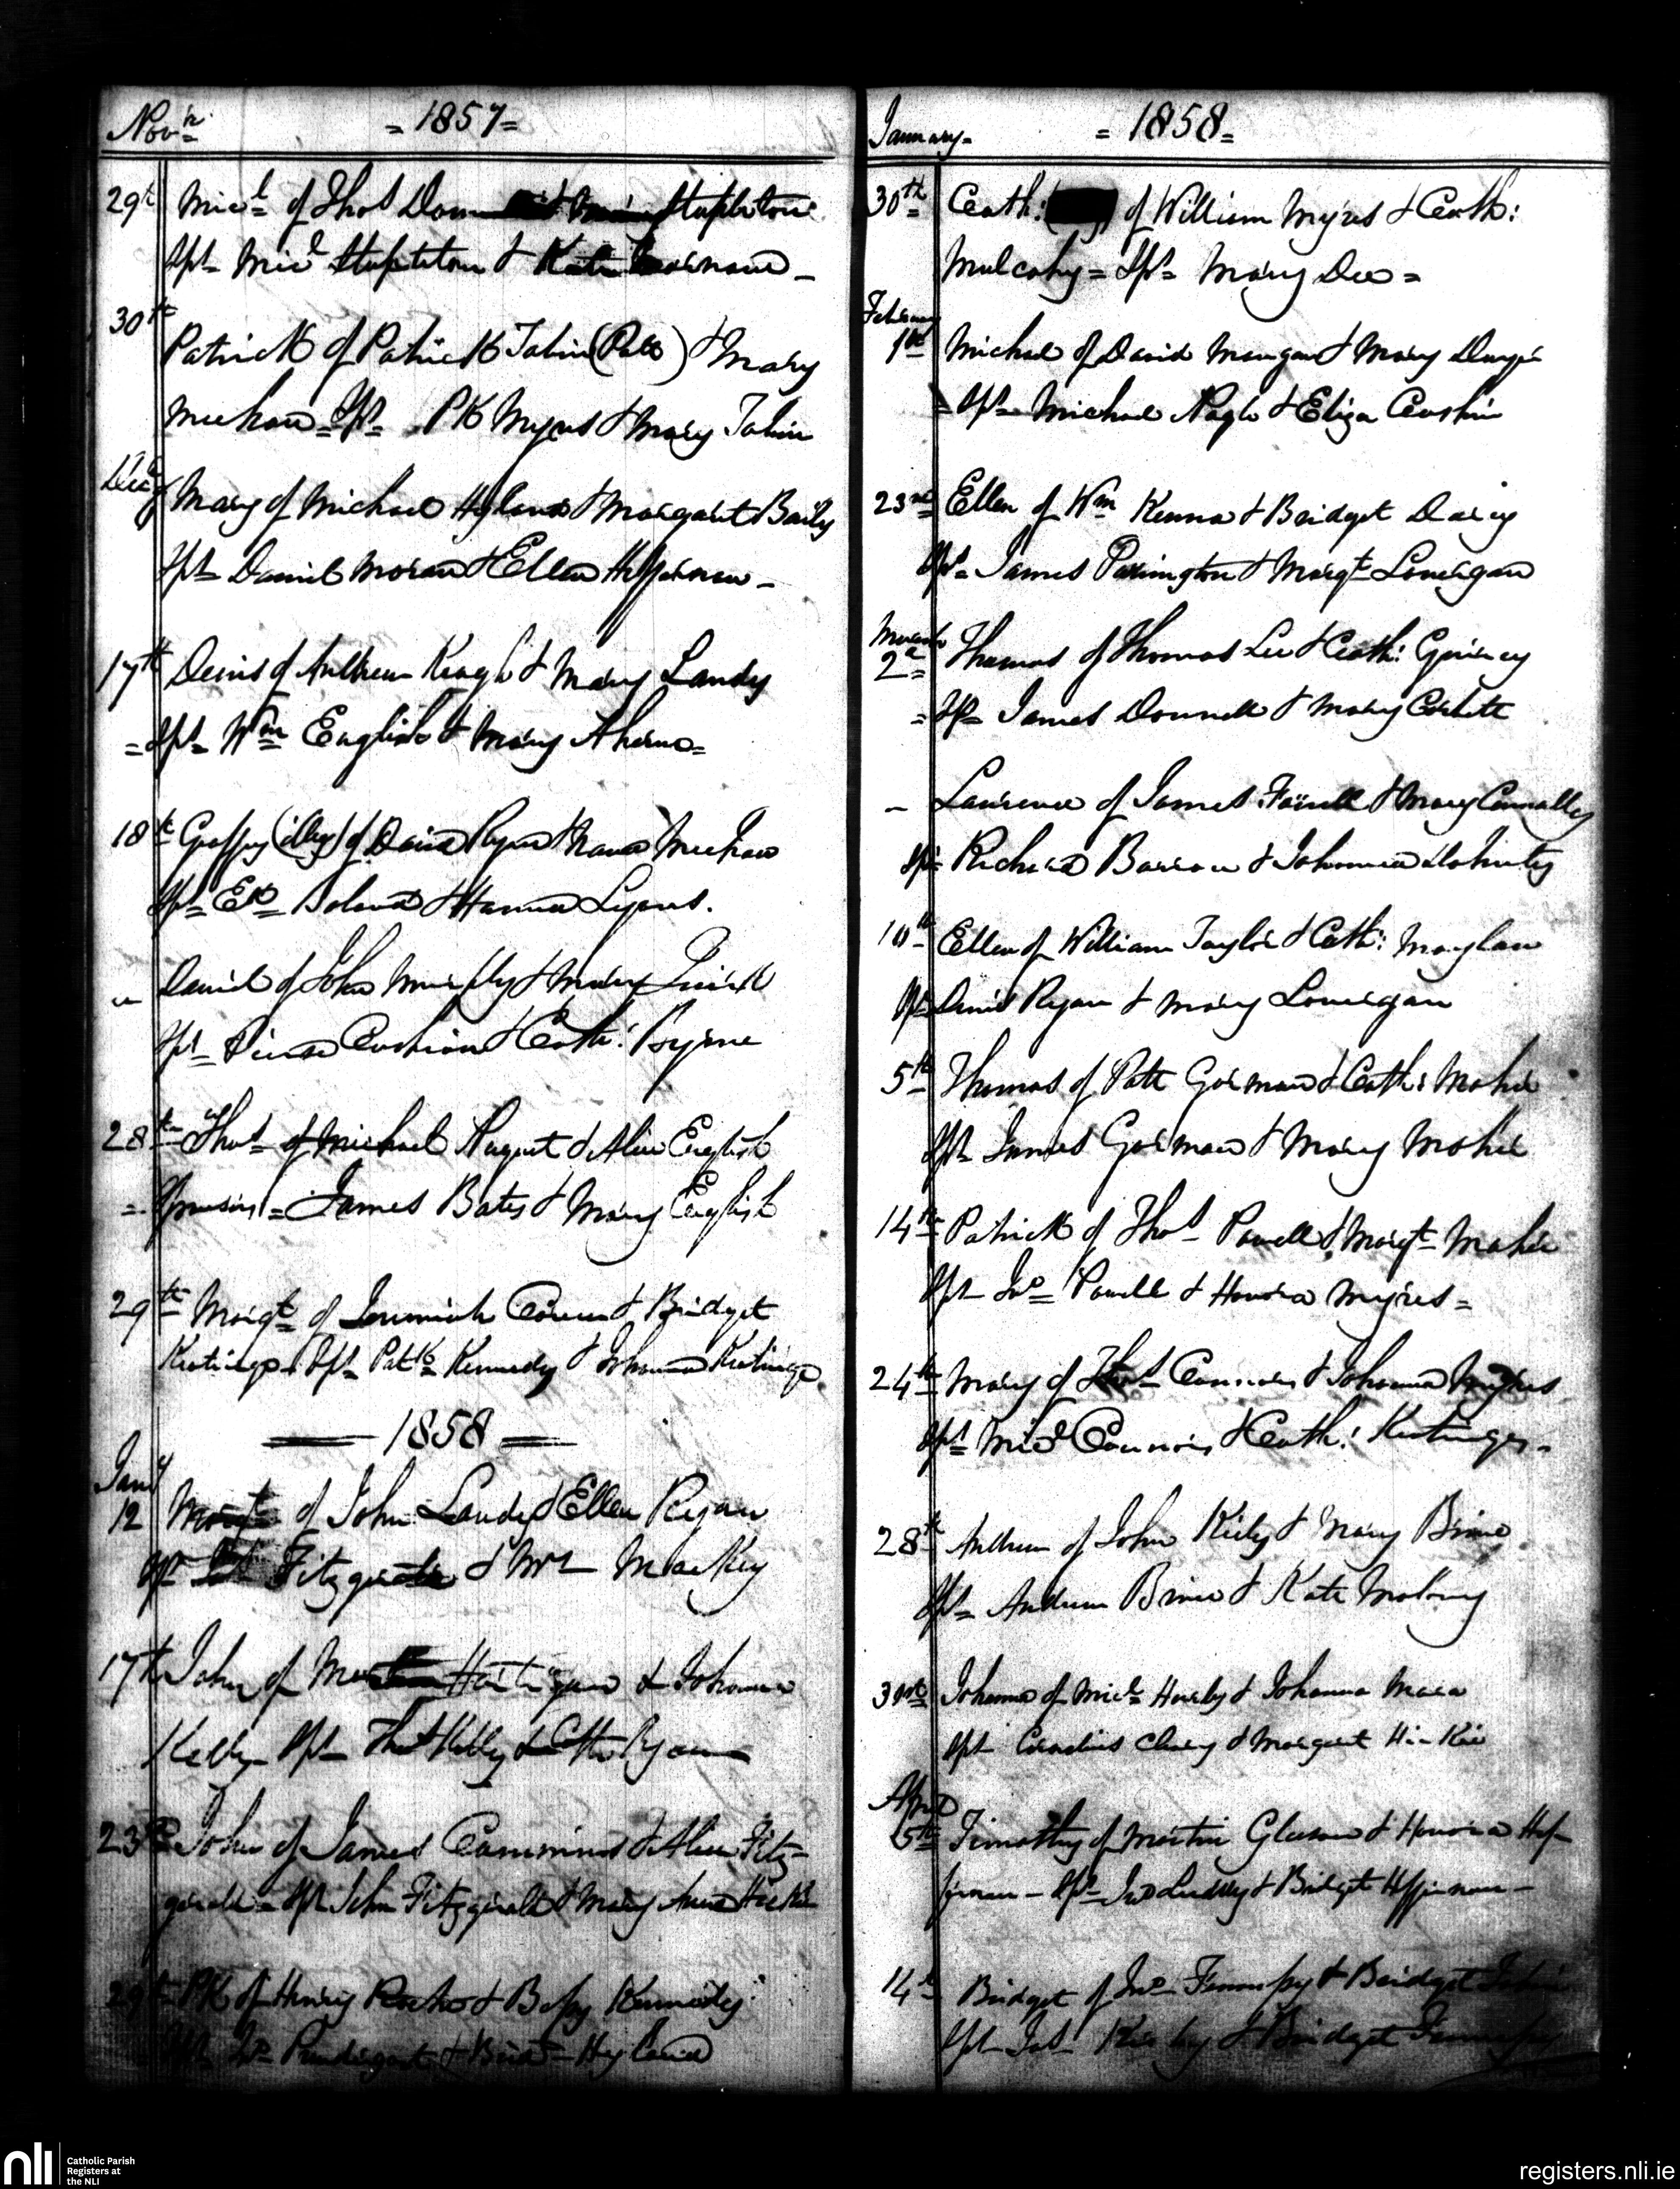 Novr = 1857 =
29t Micl of Thos Stapleton
Spt Micl Stapleton & Kate
30th
Patrick of Patrick Tobin (Patt) & Mary
Meehan = Sps PK Myers & Mary Tobin
Dec
Mary of Michael Hyland & Margaret Baily
Spt Daniel Moran & Ellen Heffernan -
17th Denis of Andrew Keogh & Mary Landy
= Spt Wm English & Mary Aherne =
18th (illeg) of David Ryan & Meehan
Spt Ed Boland & Hanna Lyons.
" Daniel of John Murphy & Mary Quirk
Spt Pierse Cushion & Cath: Byrne
28th Thos of Michael & Alice English
= Sponsors = James Bates & Mary English
29th Margt of Jeremiah & Bridget
Keatinge Spt Patk Kennedy & Johanna Keatinge
1858
Jany
12 Margt of John Landy & Ellen Ryan
Spt Fitzgerald & Mrs Mackey
17th John of Martin Hartigan & Johanna
Kelly Spt Thos Kelly & Cath Ryan
23d John of James Cummins & Alice Fitz-
gerald = Spt John Fitzgerald & Mary Anne
29t PK of Henry Roche & Bessy Kennedy
Spt Jno Prendergast & Hyland
January = = 1858 =
30th Cath: of William Myres & Cath:
Mulcahy = Sps Mary Dee =
February
1st Michael of David Mangan & Mary Dwyer
= Sps Michael Nagle & Eliza Cushin
23rd Ellen of Wm Kenna & Bridget Darcy
Sps James & Margt Lonergan
March
2d Thomas of Thomas Lee & Cath:
= Sps James Donnell & Mary Corbett
- Laurence of James Farrell & Mary Connolly
Sps Richard Barron & Johanna Doherty
10th Ellen of William Taylor & Cath:
Sps Denis Ryan & Mary Lonergan
5th Thomas of Patt Gorman & Cath: Maher
Spt James Gorman & Mary Maher
14th Patrick of Thos Powell & Margt Maher
Spt Jno Powell & Honora Myres =
24th Mary of Thos Connors & Johanna Myres
Spt Micl Connors & Cath: Keatinge -
28th Andrew of John Kiely & Mary Brine
Spt Andrew Brine & Kate
31st Johanna of Micl Hurley & Johanna Mara
Spt Cornelius Cleary & Margaret
April
5th Timothy of Martin Gleeson & Honora Hef-
fernan - Spt Jno & Bridget Heffernan -
14th Bridget of Jno Fennessy & Bridget Tobin
Spt & Bridget Fennessy
nli
Catholic Parish
Registers at
the NLI
registers.nli.ie